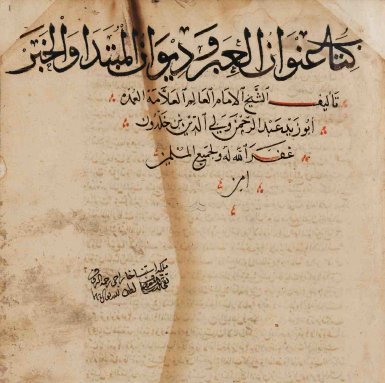 كتاب عنوان العبر وديوان المبتدا والخبر
تاليف الشيخ الامام العالم العلامة العمدة
ابو زيد عبد الرحمن ولي الدين بن خلدون
غفر الله له ولجميع المسلمين
امين